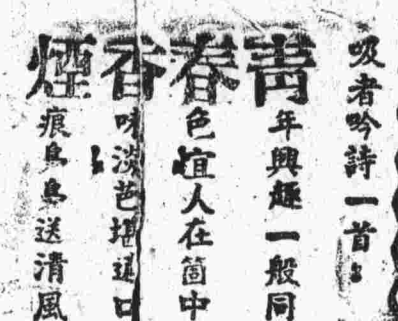 吸者吟詩一首:
青年興趣一般同
春色宜人在箇中
香味淡芭堪適口
煙痕鳥鳥送清風